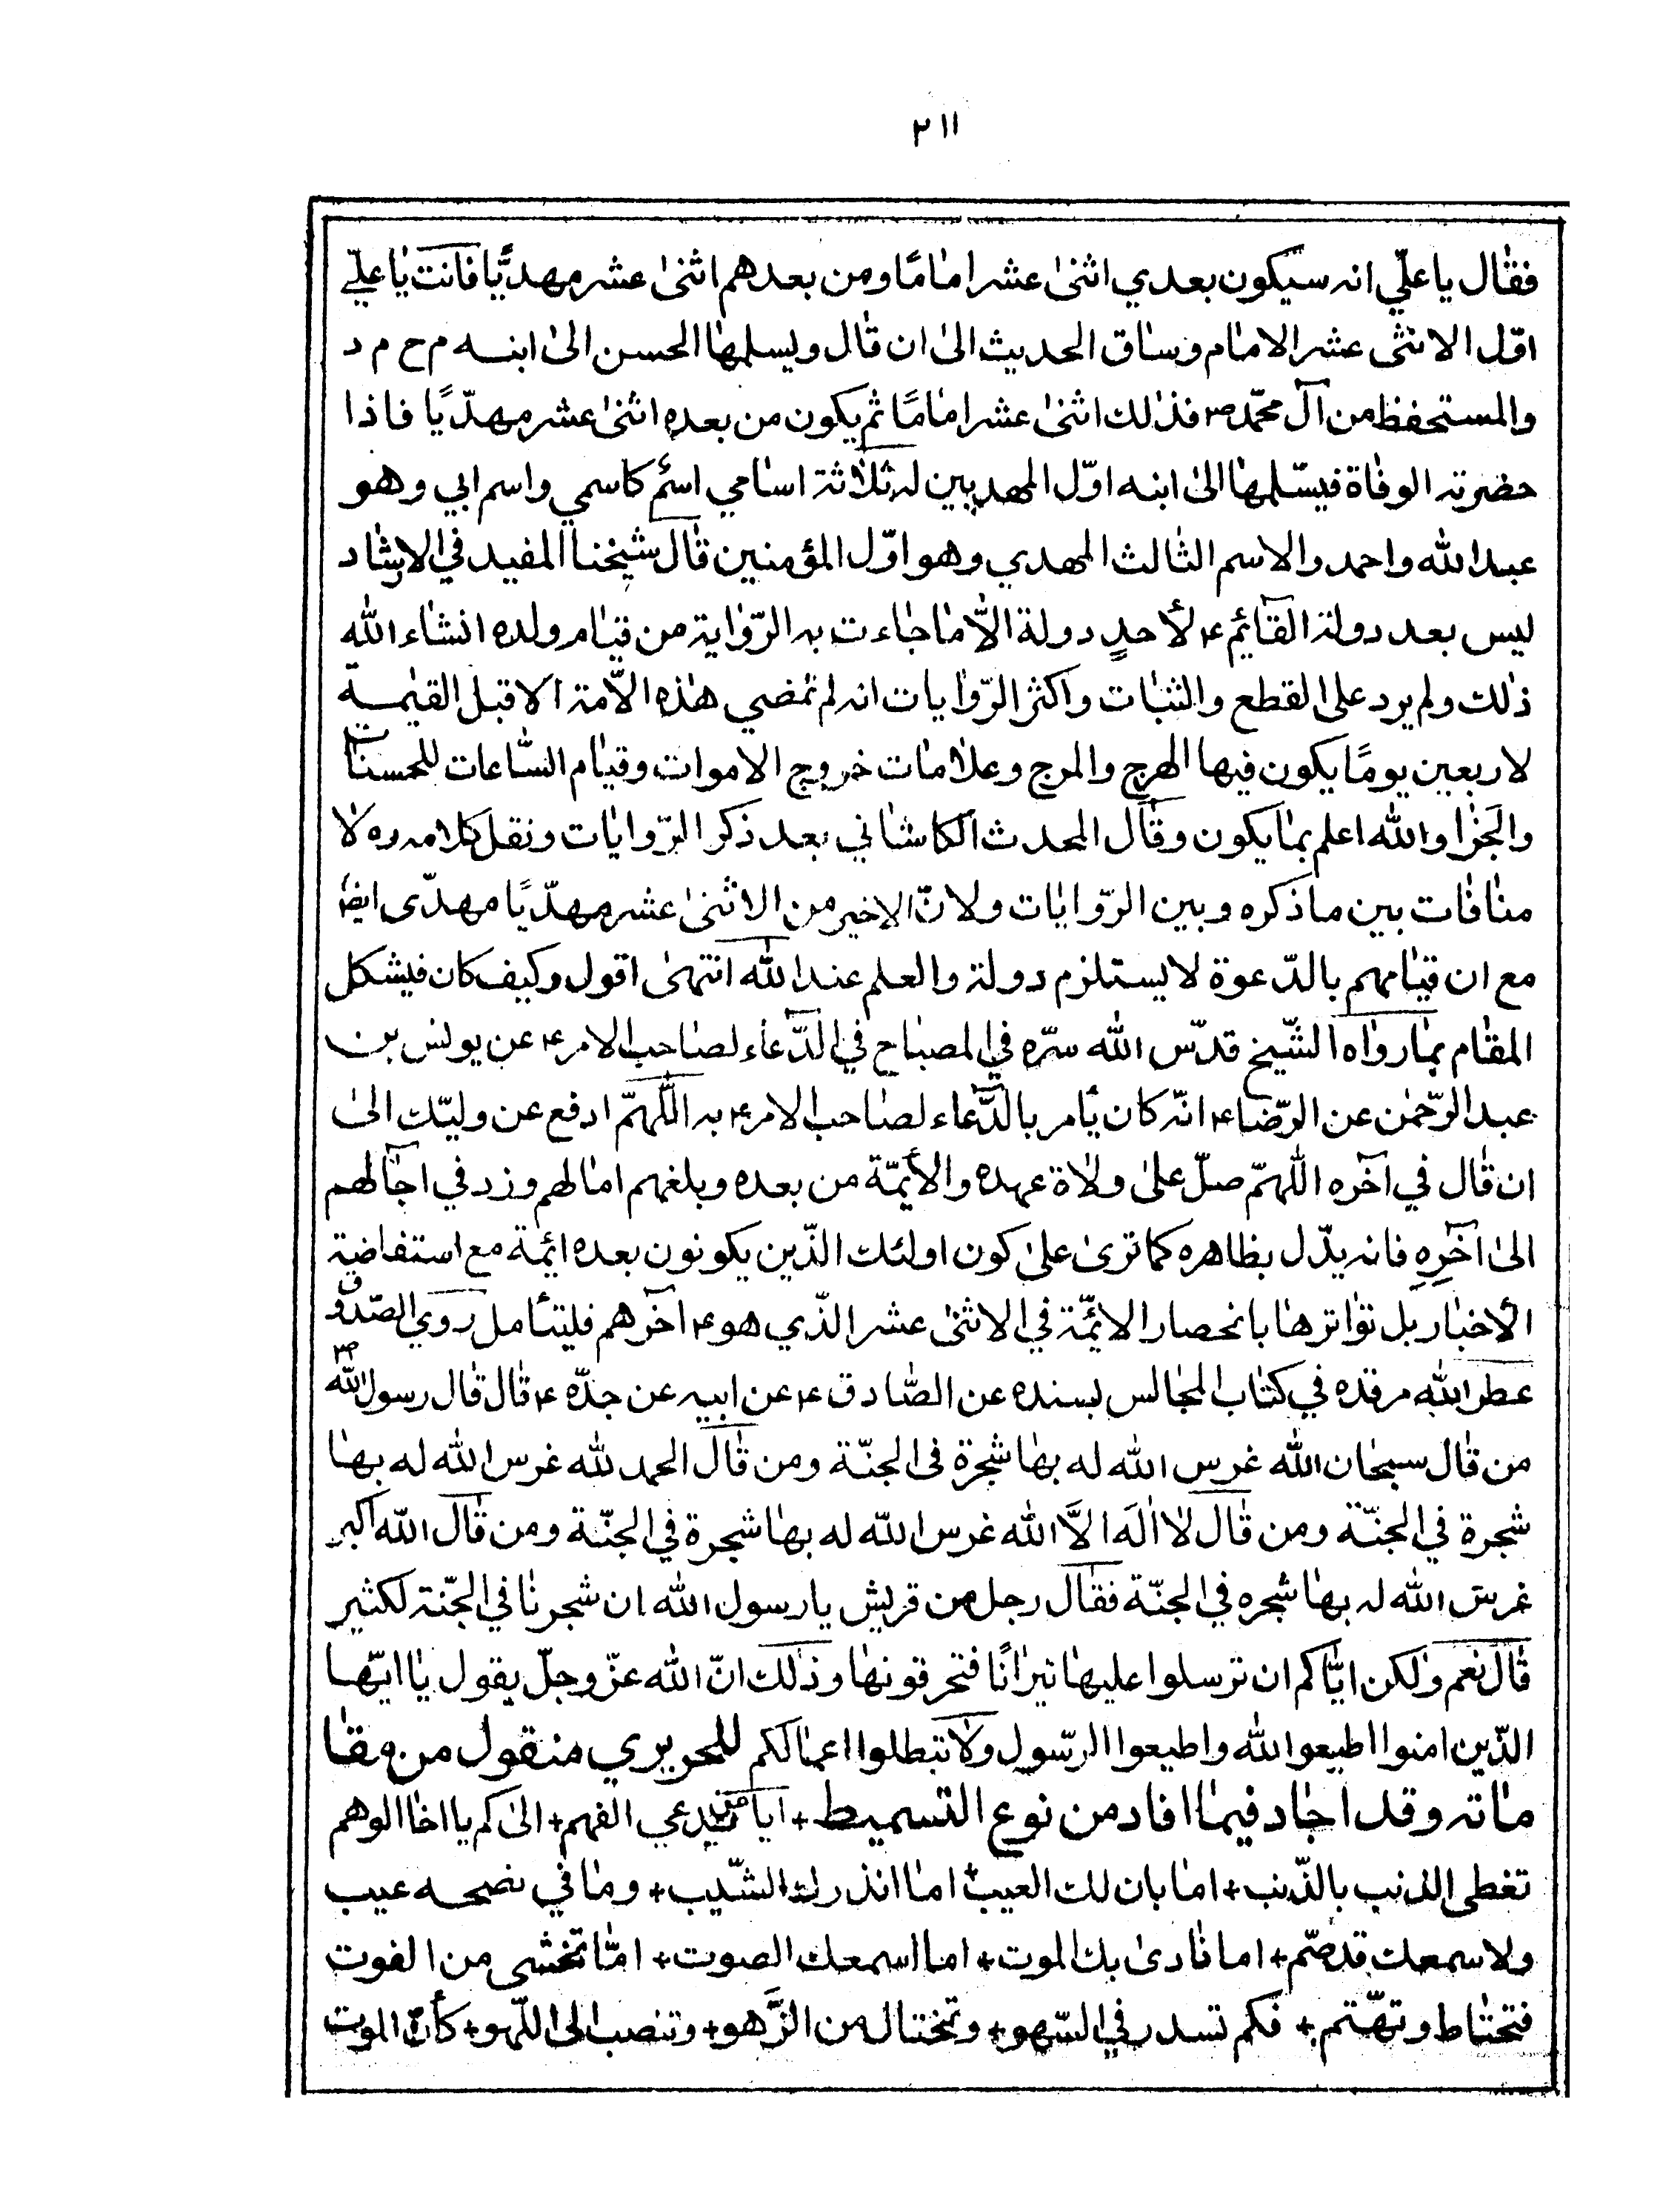 ٢١١
فقال يا علّي انه سيكون بعدي اثنى عشر امامًا ومن بعدهم اثنى عشر مهديًّا فانت يا علّي
اوّل الاثنى عشر الامام وساق الحديث الى ان قال ويسلمها الحسن الى ابنه م ح م د
والمستحفظ من آل محمّد ص فذلك اثنى عشر امامًا ثم يكون من بعده اثنى عشر مهدّيًا فاذا
حضرته الوفاة فيسّلمها الى ابنه اوّل المهديين له ثلاثة اسامي اسمٌ كاسمي واسم ابي وهو
عبد الله واحمد والاسم الثالث المهدي وهو اوّل المؤمنين قال شيخنا المفيد في الارشاد
ليس بعد دولة القائم ع لأحدٍ دولة الاّ ما جاءت به الرّواية من قيام ولده انشاء الله
ذلك ولم يرد على القطع والثبات واكثر الرّوايات انه لم تمضي هذه الاّمة الا قبل القيمة
لاربعين يومًا يكون فيها الهرج والمرج وعلامات خروج الاموات وقيام السّاعات للحسنات
والجزا والله اعلم بما يكون وقال المحدث الكاشاني بعد ذكر الرّوايات ونقل كلامه ره لا
منافات بين ما ذكره وبين الرّوايات ولانّ الاخير من الاثنى عشر مهدّيًا مهدّى ايضا
مع ان قيامهم بالدّعوة لا يستلزم دولة والعلم عند الله انتهى اقول وكيف كان فيشكل
المقام بما رواه الشّيخ قدّس الله سرّه في المصباح في الدّعاء لصاحب الامر ع عن يونس بن
عبد الرّحمن عن الرّضا ع انّه كان يأمر بالدّعاء لصاحب الامر ع به اللّهمّ ادفع عن وليّك الى
ان قال في آخره اللّهمّ صلّ على ولاة عهده والأئمّة من بعده وبلغهم امالهم وزد في اجالهم
الى آخرِهِ فانه يدّل بظاهره كما ترى على كون اولئك الذّين يكونون بعده ائمة مع استفاضة
الأخبار بل تواترها بانحصار الائمّة في الاثنى عشر الذّي هو ع آخرهم فليتأمل روي الصّدوق
عطر الله مرقده في كتاب المجالس بسنده عن الصّادق ع عن ابيه عن جدّه ع قال قال رسول الله ص
من قال سبحان الله غرس الله له بها شجرة فى الجنّة ومن قال الحمد لله غرس الله له بها
شجرة في الجنّة ومن قال لا اله الاَّ الله غرس الله له بها شجرة في الجنّة ومن قال الله اكبر
غرس الله له بها شجره في الجنّة فقال رجل من قريش يا رسول الله ان شجرنا في الجنّة لكثير
قال نعم ولكن ايّاكم ان ترسلوا عليها نيرانًا فتحرقونها وذلك انّ الله عزّ وجلّ يقول يا ايّها
الذّين امنوا اطيعوا الله واطيعوا الرسّول ولا تبطلوا اعمالكم للحريري منقول من مقا
ماته وقد اجاد فيما افاد من نوع التسميط + ايا من يدعي الفهم + الى كم يا اخا الوهم
تغطى الذنب بالذّنب + اما بان لك العيب + اما انذرك الشّيب + وما في نصحه عيب
ولا سمعك قد صّم + اما نادى بك الموت + اما اسمعك الصوت + امّا تخشى من الفوت
فتحتاط وتهّتم + فكم تسدر في السّهو + وتختال من الزَّهو + وتنصب الى اللّهو + كأنّ الموت